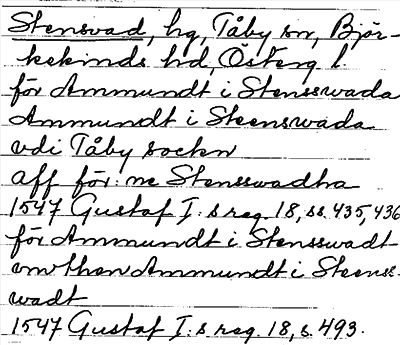 Stensvad, hg, Tåby sn, Björ-
kekinds hd, Österg. l.
för Ammundt i Stensswada
Ammundt i Steenswada
vdi Tåby sockn
aff för:ne Stensswadha
1547 Gustaf I:s reg. 18, ss. 435, 436
för Ammundt i Stensswadt
vnthan Ammundt i Steens-
wadt
1547 Gustaf I:s reg. 18, s. 493.